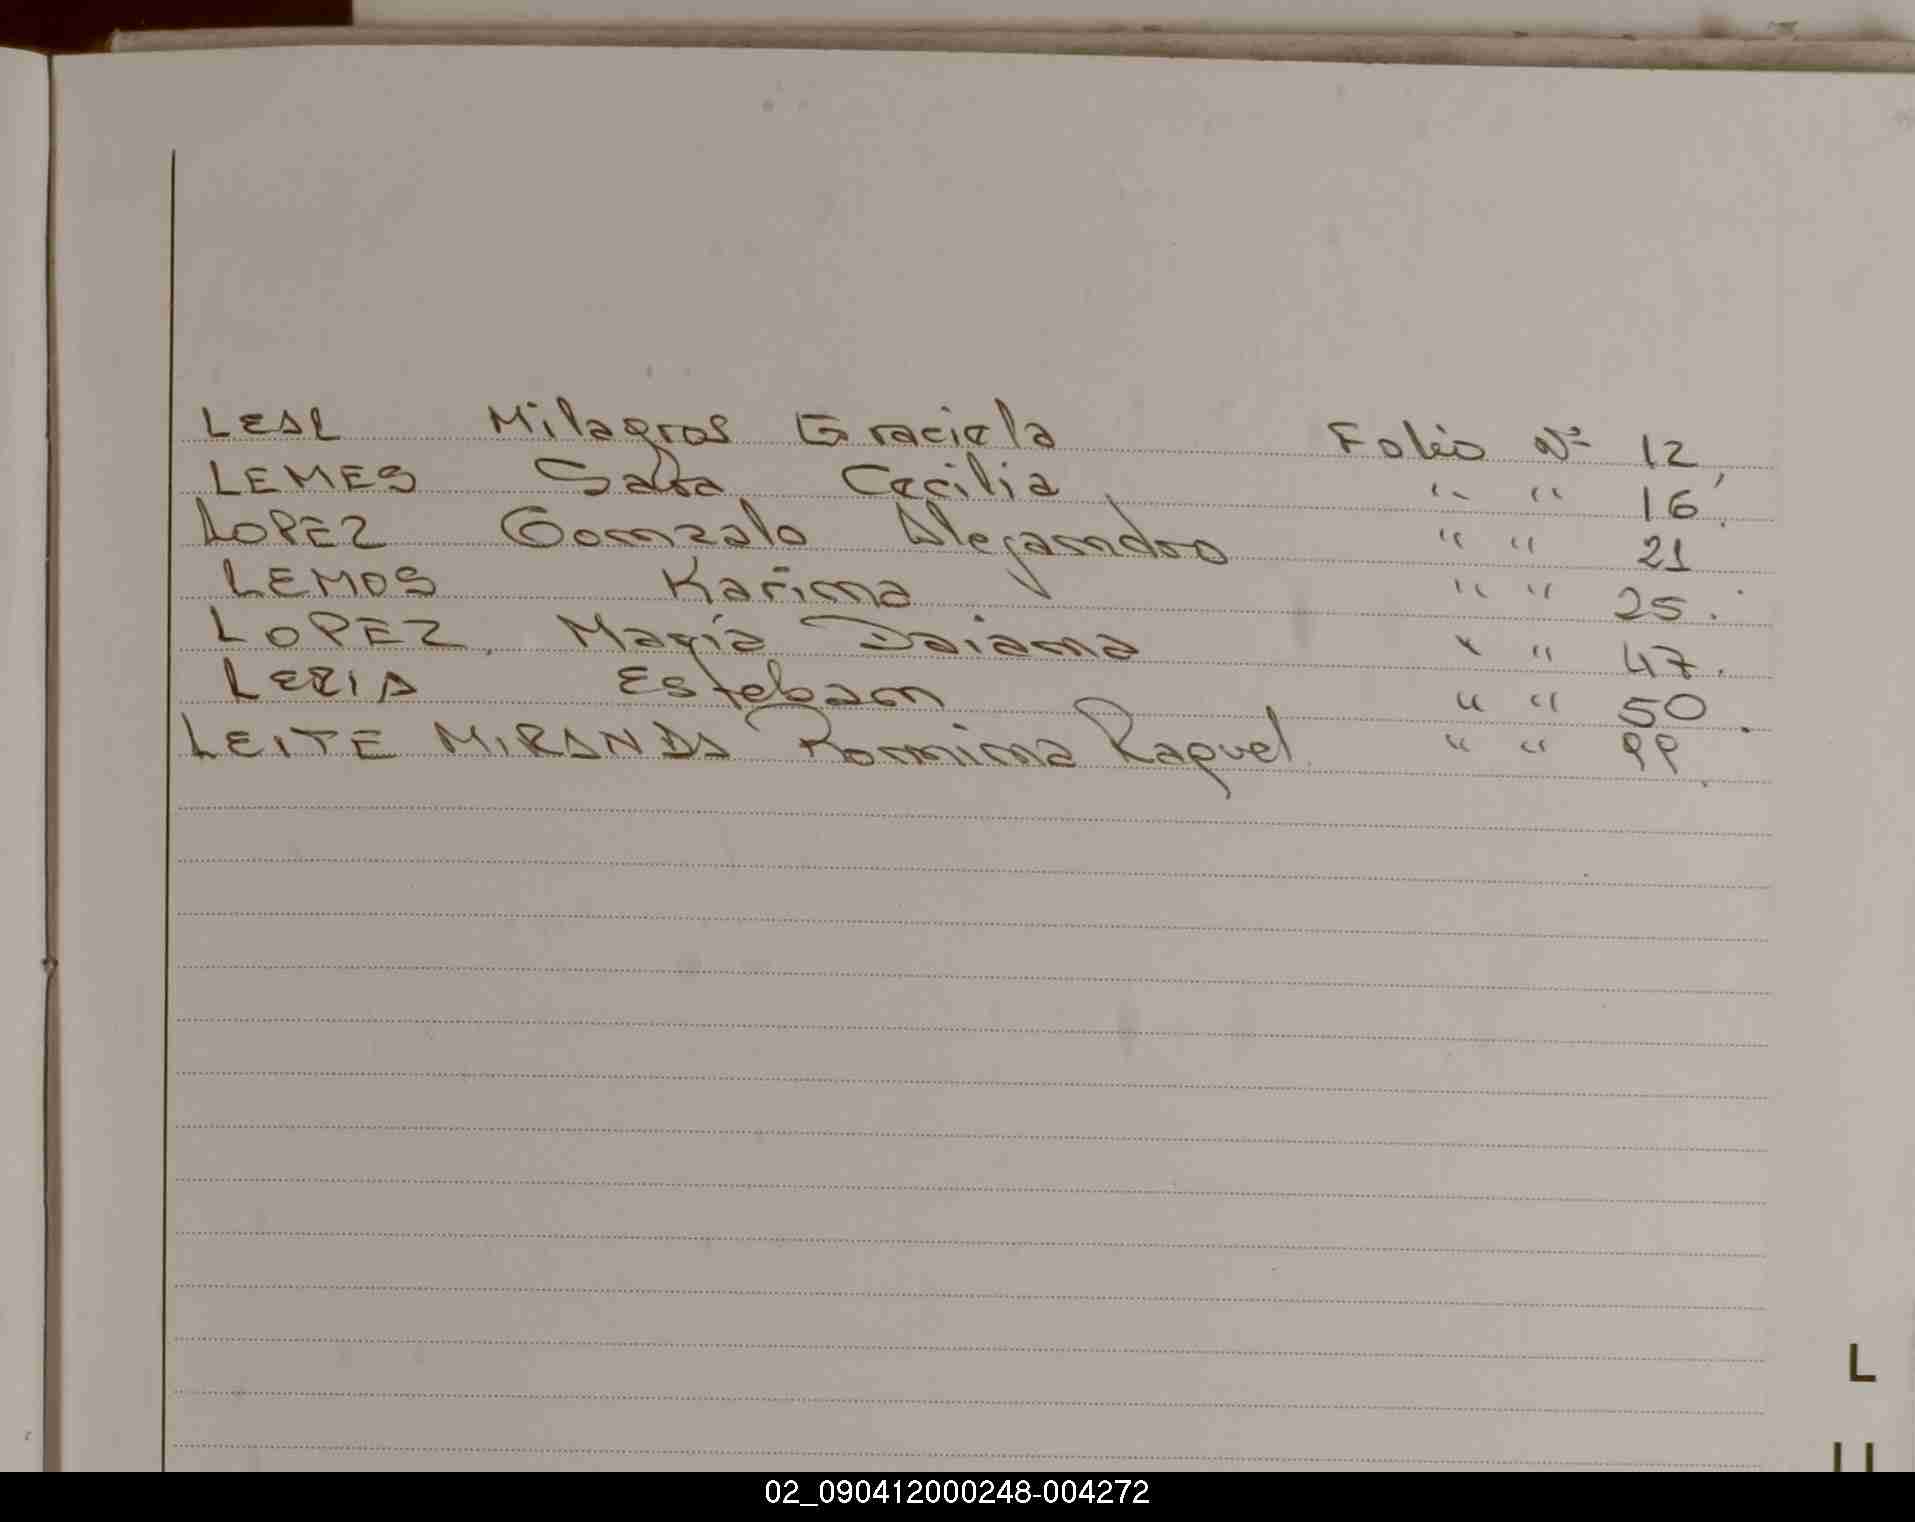 LEAL Milagros Graciela Folio Nº 12
LEMES Sara Cecilia " " 16.
LOPEZ Gonzalo Alejandro " " 21
LEMOS Karina " " 25.
LOPEZ, María Daiana " " 47.
LERIA Esteban " " 50.
LEITE MIRANDA Romina Raquel " " 99.
L
LL
02_090412000248-004272